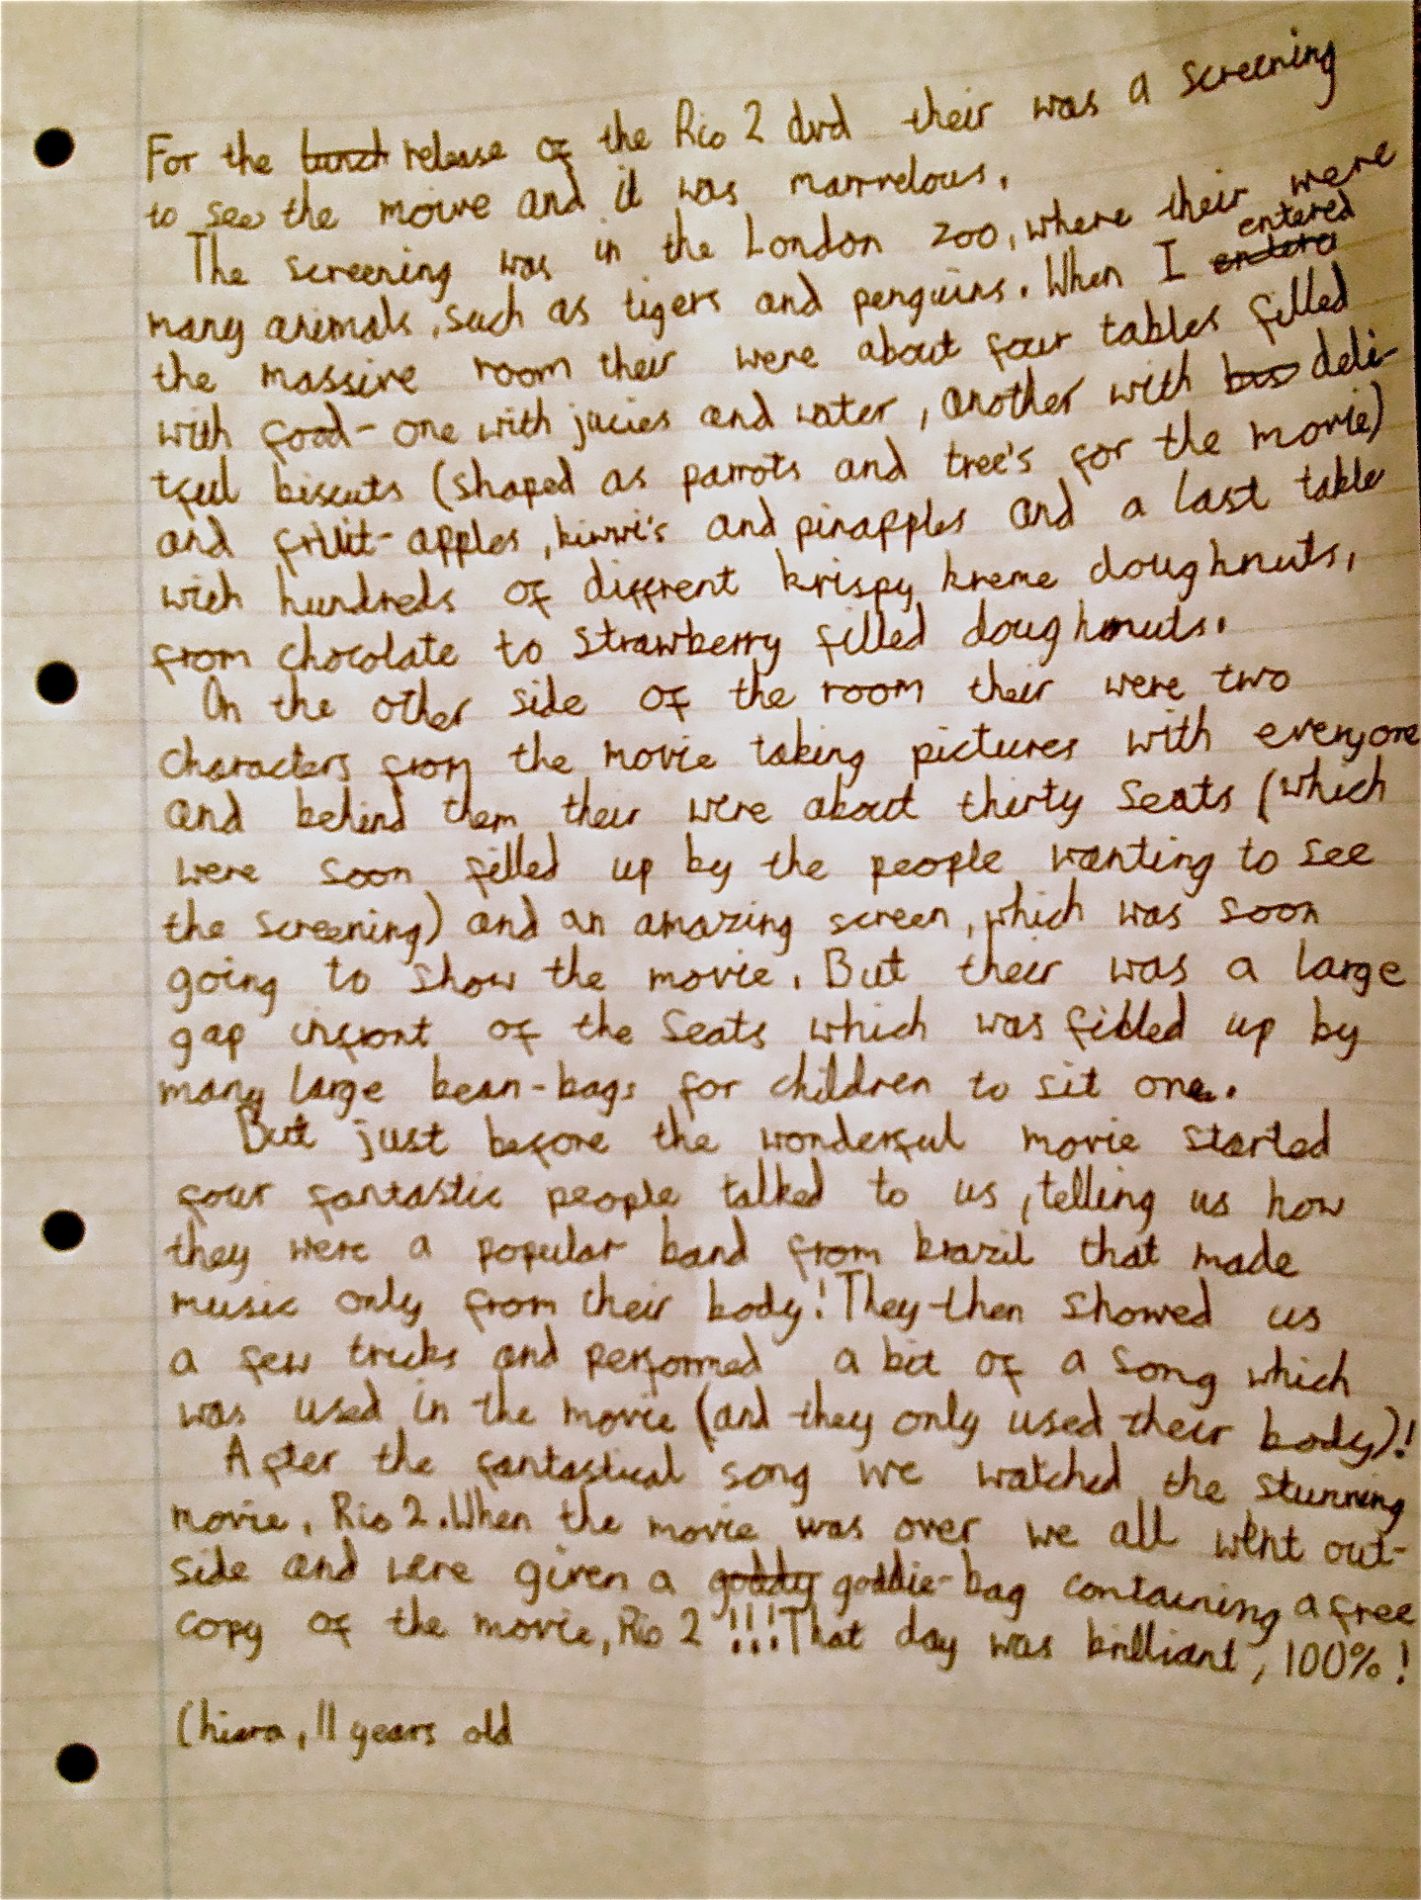 For the lunch release of the Rio 2 dvd their was a screening
to see the moive and it was marrvelous.
The screening was in the London zoo, where their were
many animals, such as tigers and penguins. When I entered
the massive room their were about four tables filled
with food - one with jucies and water, another with bis deli-
tful biscuts (shaped as parrots and tree's for the movie)
and fruit - apples, kiwwi's and pinapples and a last table
with hundreds of diffrent krispy kreme doughnuts,
from chocolate to strawberry filled doughnuts.
On the other side of the room their were two
characters from the movie taking pictures with everyone
and behind them their were about thirty seats (which
were soon filled up by the people wanting to see
the screening) and an amazing screen, which was soon
going to show the movie. But their was a large
gap infront of the seats which was filled up by
many large bean-bags for children to sit one.
But just before the wonderful movie started
four fantastic people talked to us, telling us how
they were a popular band from brazil that made
music only from their body! They then showed us
a few tricks and performed a bit of a song which
was used in the movie (and they only used their body)!
After the fantastical song we watched the stunning
movie, Rio 2. When the movie was over we all went out-
side and were given a goddy goddie-bag containing a free
copy of the movie, Rio 2 !!! That day was brilliant, 100%!
Chiara, 11 years old